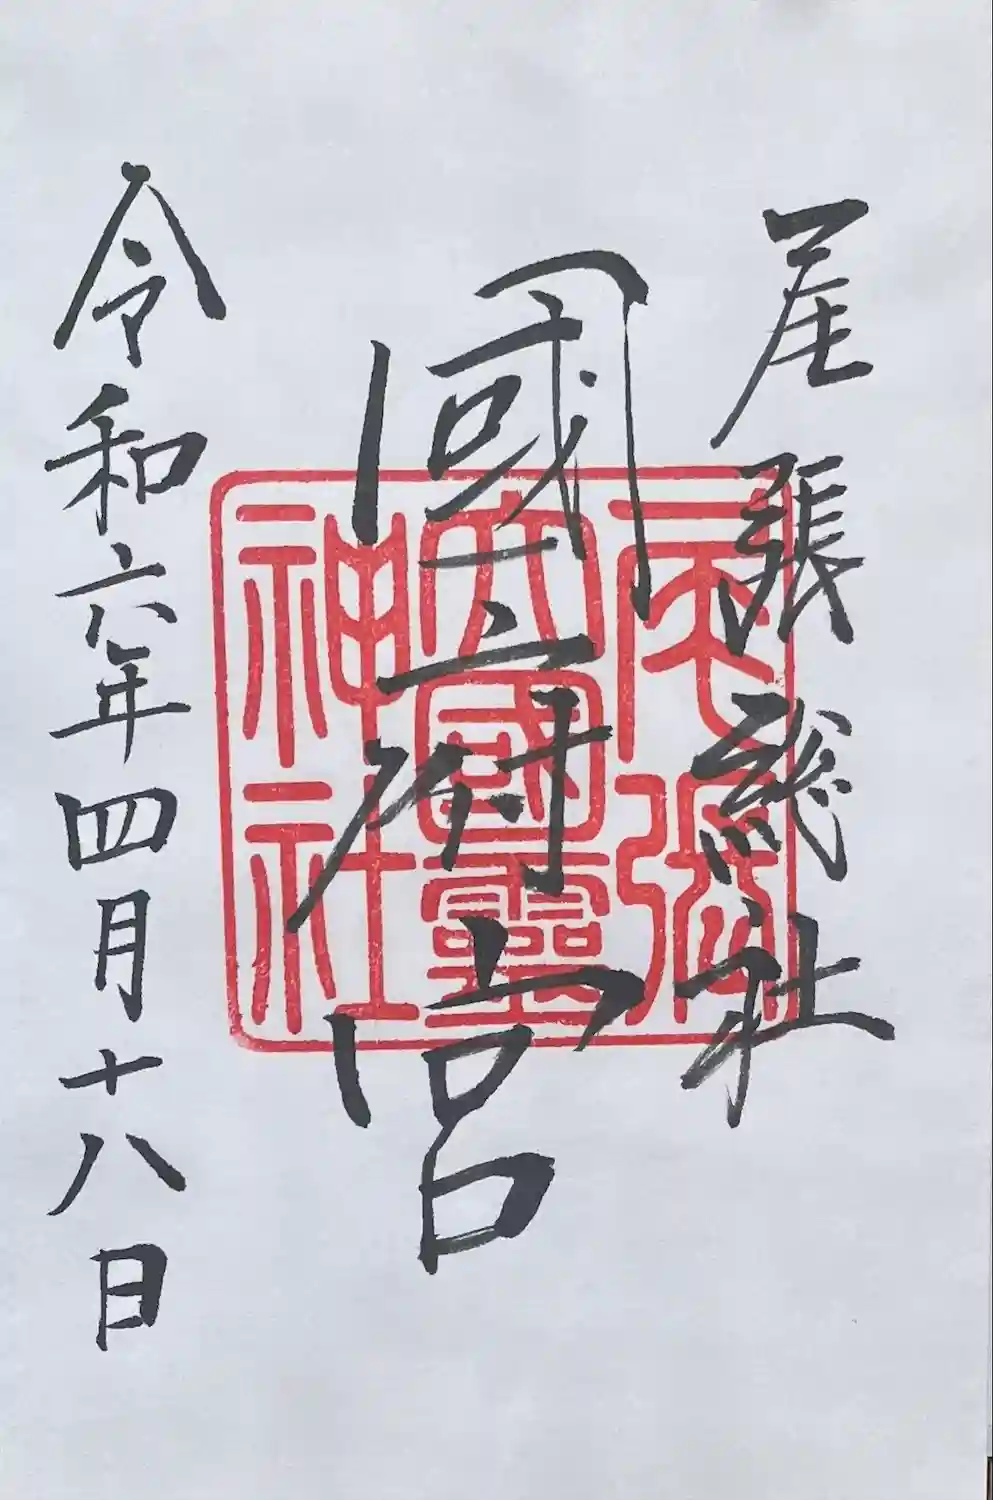 尾張総社
國府宮
令和六年四月十八日
尾張
大國霊
神社